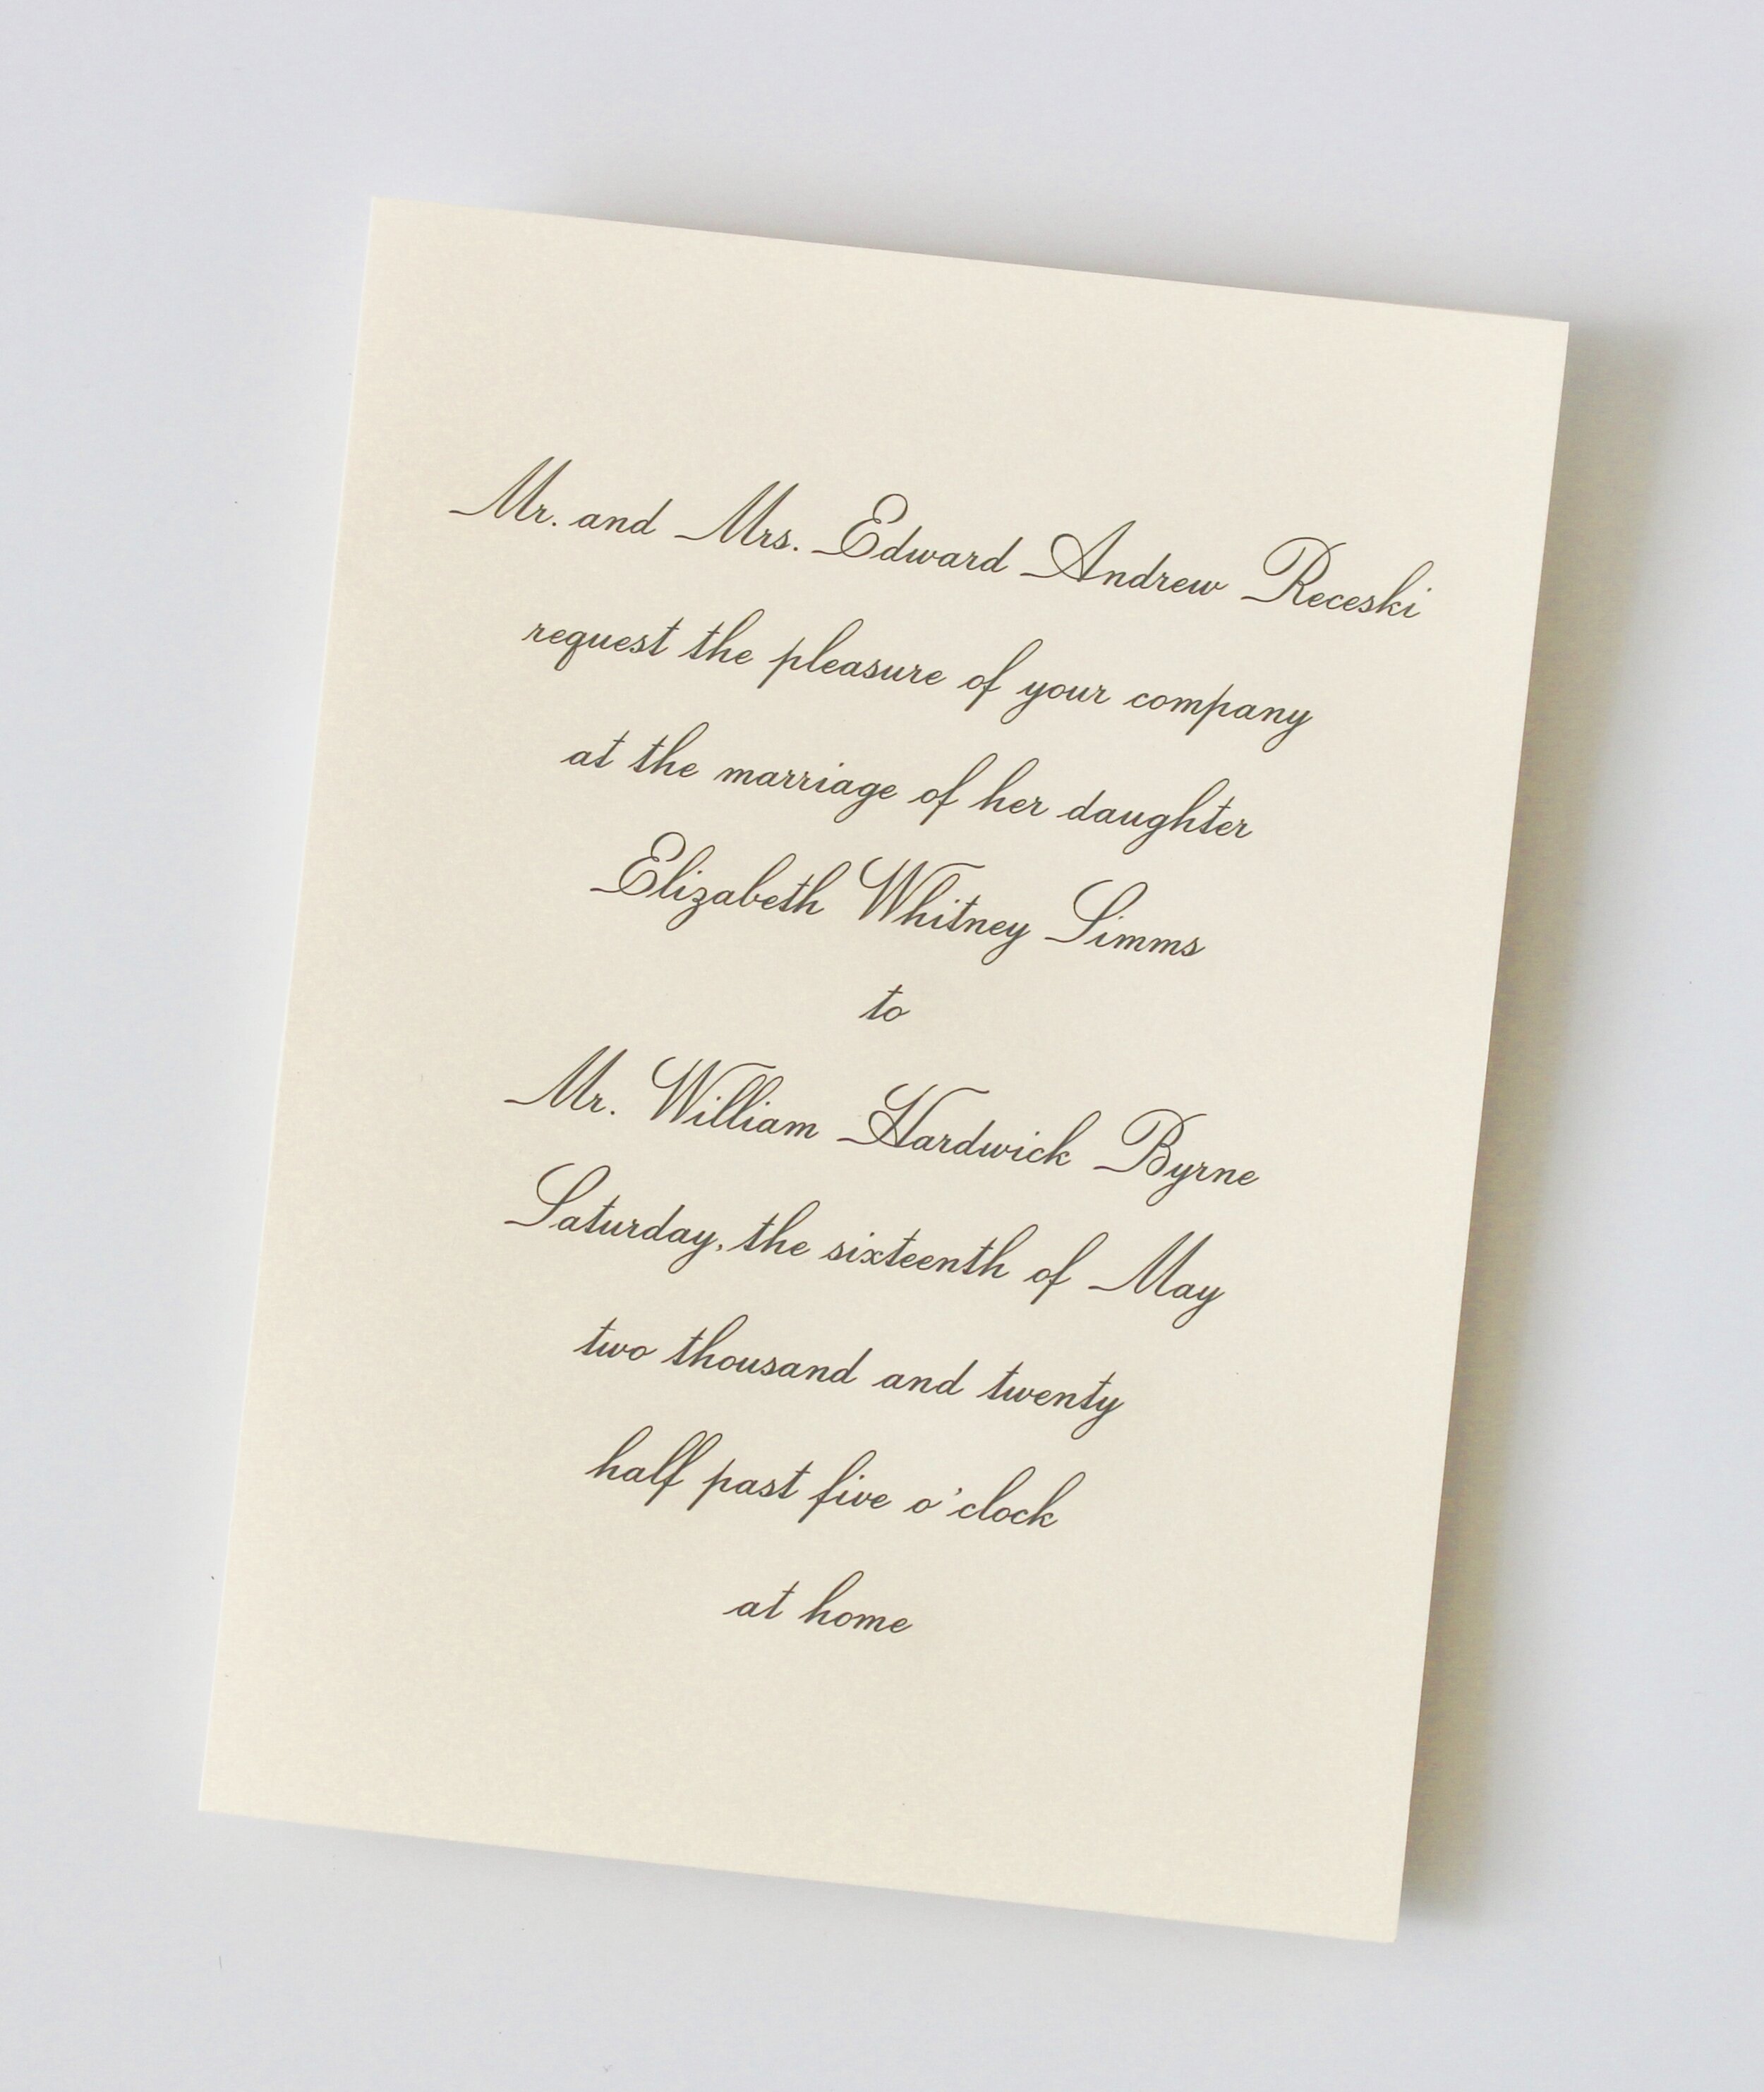 Mr. and Mrs. Edward Andrew Receski
request the pleasure of your company
at the marriage of her daughter
Elizabeth Whitney Simms
to
Mr. William Hardwick Byrne
Saturday, the sixteenth of May
two thousand and twenty
half past five o'clock
at home